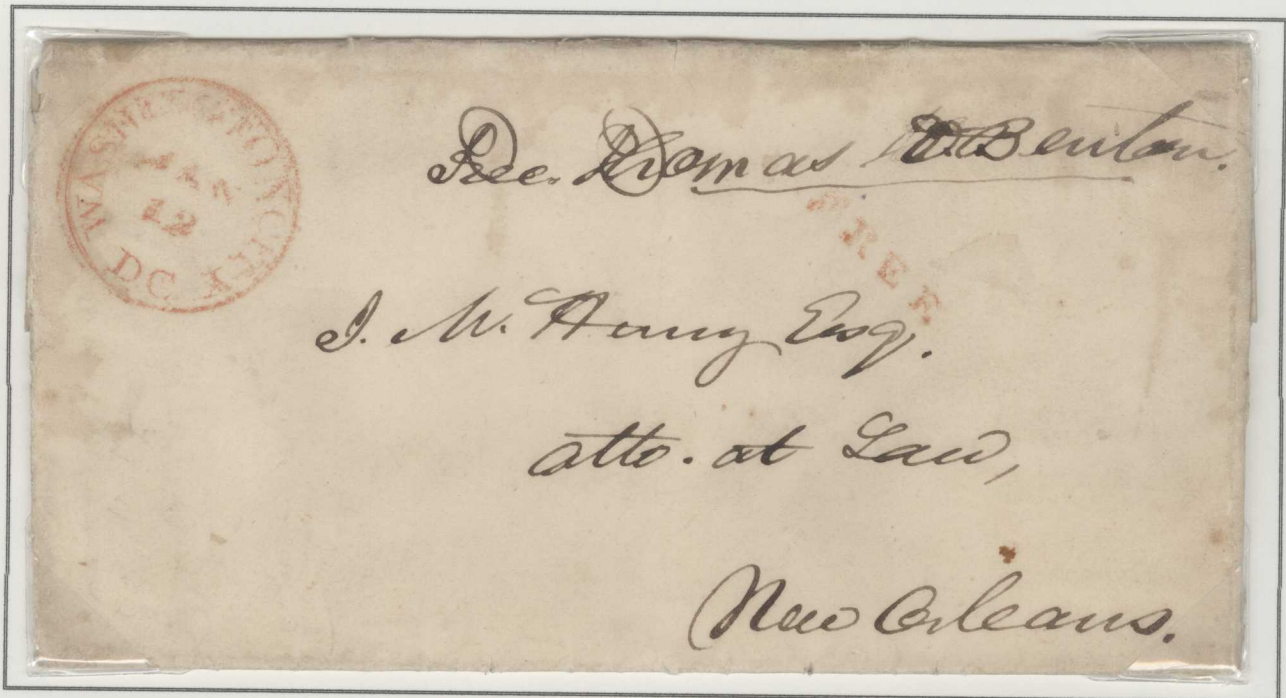 WASHINGTON CITY
MAR
12
D.C.
Free. Thomas H. Benton.
FREE
J. M. Henry Esq.
atto. at Law,
New Orleans.